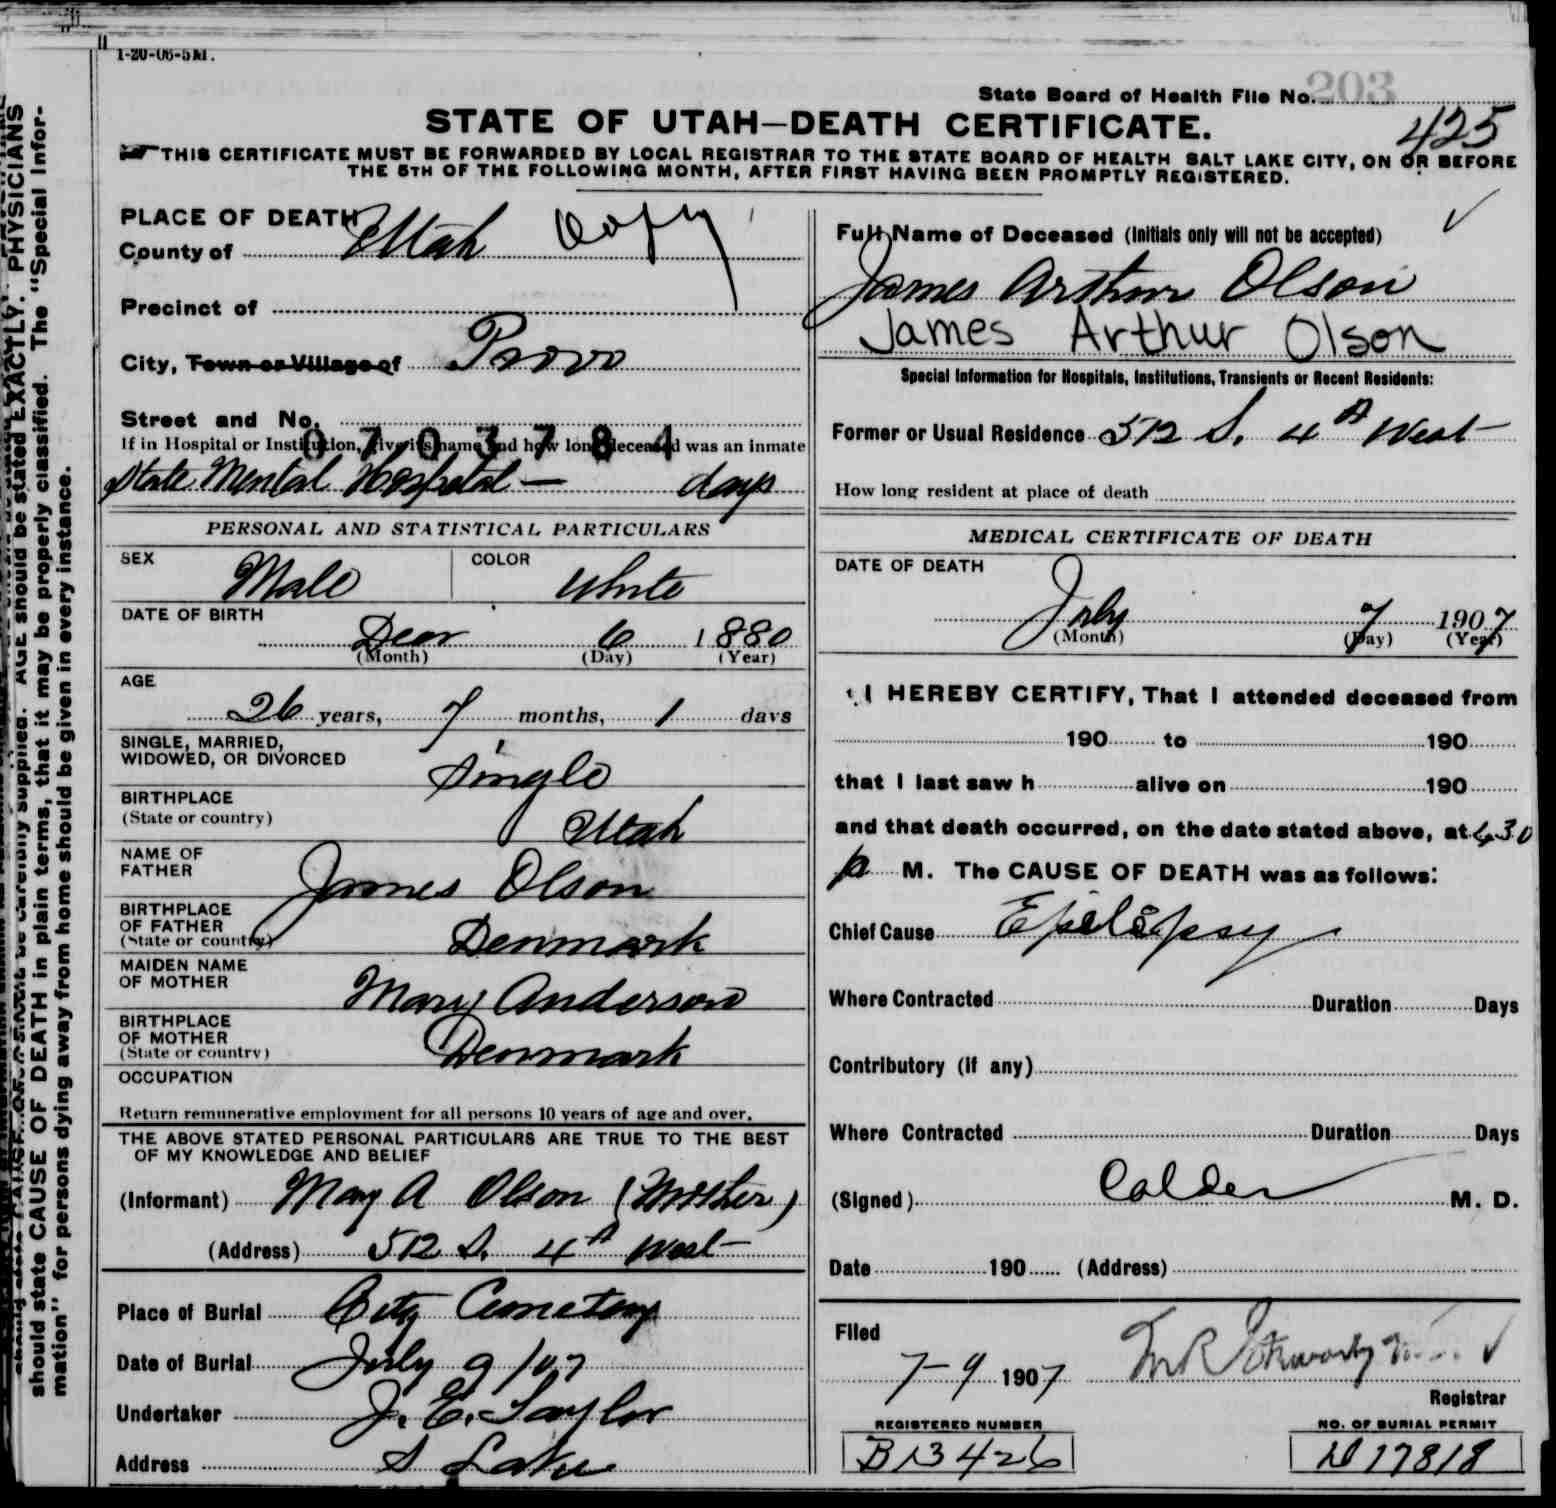 1-20-06-5M.
State Board of Health File No. 203
425
STATE OF UTAH—DEATH CERTIFICATE.
THIS CERTIFICATE MUST BE FORWARDED BY LOCAL REGISTRAR TO THE STATE BOARD OF HEALTH SALT LAKE CITY, ON OR BEFORE
THE 5TH OF THE FOLLOWING MONTH, AFTER FIRST HAVING BEEN PROMPTLY REGISTERED.
PLACE OF DEATH
County of Utah Copy
Precinct of
City, Town or Village of Provo
Street and No.
0703784
If in Hospital or Institution, give its name and how long deceased was an inmate
State Mental Hospital — days
PERSONAL AND STATISTICAL PARTICULARS
SEX Male COLOR White
DATE OF BIRTH
Decr 6 1880
(Month) (Day) (Year)
AGE
26 years, 7 months, 1 days
SINGLE, MARRIED,
WIDOWED, OR DIVORCED Single
BIRTHPLACE
(State or country) Utah
NAME OF
FATHER James Olson
BIRTHPLACE
OF FATHER
(State or country) Denmark
MAIDEN NAME
OF MOTHER Mary Anderson
BIRTHPLACE
OF MOTHER
(State or country) Denmark
OCCUPATION
Return remunerative employment for all persons 10 years of age and over.
THE ABOVE STATED PERSONAL PARTICULARS ARE TRUE TO THE BEST
OF MY KNOWLEDGE AND BELIEF
(Informant) Mary A Olson (Mother)
(Address) 512 S. 4th West
Place of Burial City Cemetery
Date of Burial July 9/07
Undertaker J. E. Taylor
Address S Lake
Full Name of Deceased (Initials only will not be accepted)
James Arthur Olson
James Arthur Olson
Special Information for Hospitals, Institutions, Transients or Recent Residents:
Former or Usual Residence 512 S. 4th West
How long resident at place of death
MEDICAL CERTIFICATE OF DEATH
DATE OF DEATH
July 7 1907
(Month) (Day) (Year)
I HEREBY CERTIFY, That I attended deceased from
190 to 190
that I last saw h alive on 190
and that death occurred, on the date stated above, at 430
p M. The CAUSE OF DEATH was as follows:
Chief Cause Epilepsy
Where Contracted Duration Days
Contributory (if any)
Where Contracted Duration Days
(Signed) Calder M. D.
Date 190 (Address)
Filed
7-9 1907
Registrar
REGISTERED NUMBER
B13426
NO. OF BURIAL PERMIT
D17818
PHYSICIANS
should be stated EXACTLY.
AGE should be stated
should state CAUSE OF DEATH in plain terms, that it may be properly classified. The "Special Infor-
mation" for persons dying away from home should be given in every instance.